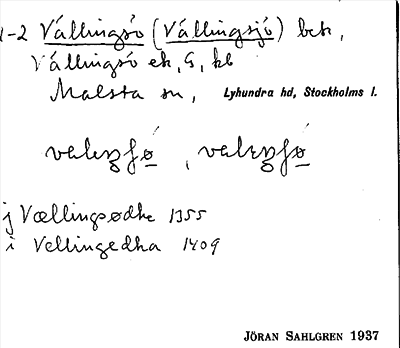 1-2 Vällingsö (Vällingsjö) beb,
Vällingsö ek, G, kb
Malsta sn, Lyhundra hd, Stockholms l.
j Vællingsødhe 1355
i Vellingedha 1409
JÖRAN SAHLGREN 1937